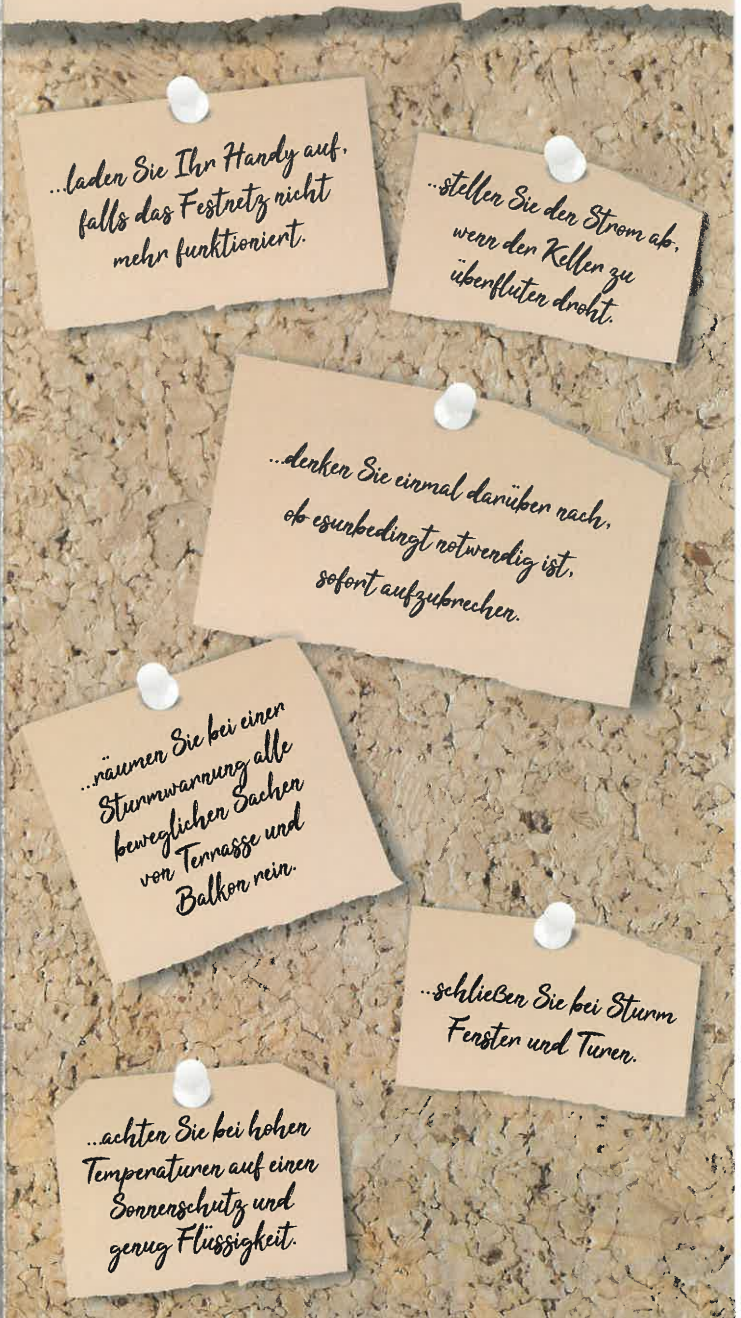 ...laden Sie Ihr Handy auf,
falls das Festnetz nicht
mehr funktioniert.
...stellen Sie den Strom ab,
wenn der Keller zu
überfluten droht.
...denken Sie einmal darüber nach,
ob esunbedingt notwendig ist,
sofort aufzubrechen.
...räumen Sie bei einer
Sturmwarnung alle
beweglichen Sachen
von Terrasse und
Balkon rein.
...schließen Sie bei Sturm
Fenster und Turen.
...achten Sie bei hohen
Temperaturen auf einen
Sonnenschutz und
genug Flüssigkeit.